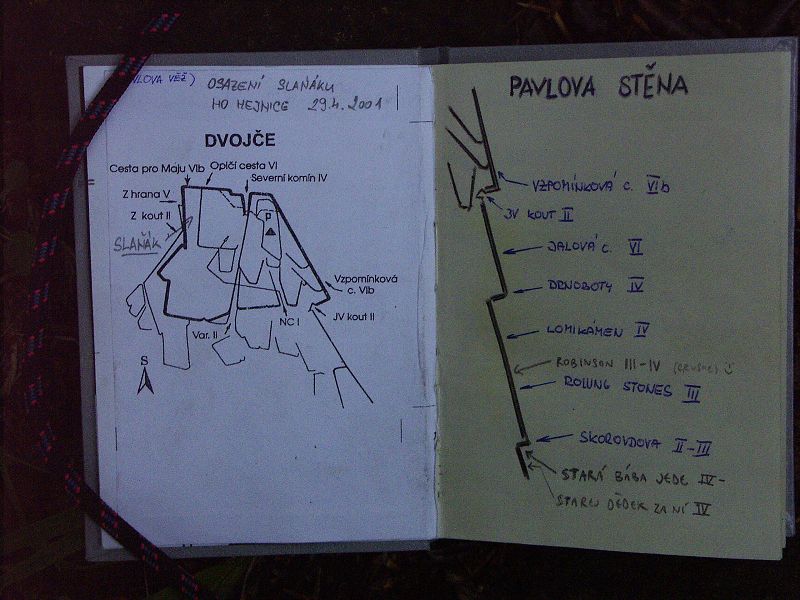 VLOVA VĚŽ)
OSAZENÍ SLAŇÁKU
HO HEJNICE 29.4.2001
DVOJČE
Cesta pro Maju VIb
Opičí cesta VI
Severní komín IV
Z hrana V
Z kout II
SLAŇÁK
P
Vzpomínková
c. VIb
JV kout II
NC I
Var. II
S
PAVLOVA STĚNA
VZPOMÍNKOVÁ C. VIb
JV KOUT II
JALOVÁ C. VI
DRNOBOTY IV
LOMIKÁMEN IV
ROBINSON III-IV
ROLLING STONES III
SKOROVDOVA II-III
STARÁ BÁBA JEDE IV-
STAREJ DĚDEK ZA NÍ IV